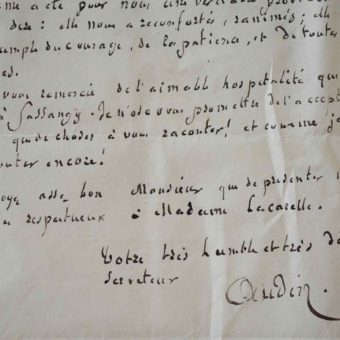 me a été pour nous une véritable provid
dire: elle nous a réconfortés, ranimés; elle
emple du courage, de la patience, et de toutes
es.
vous remercie de l'aimable hospitalité que
à Sassangy. Je n'ose vous promettre de l'accept
que de choses à vous raconter! et comme je
outer encore!
oyez assez bon Monsieur que de présenter
respectueux à Madame Lacaille.
Votre très humble et très dé
serviteur
Oudin.